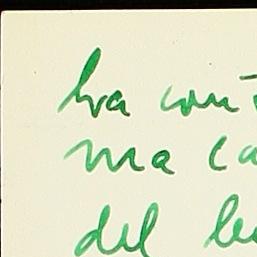 ha con
ma ca
del le